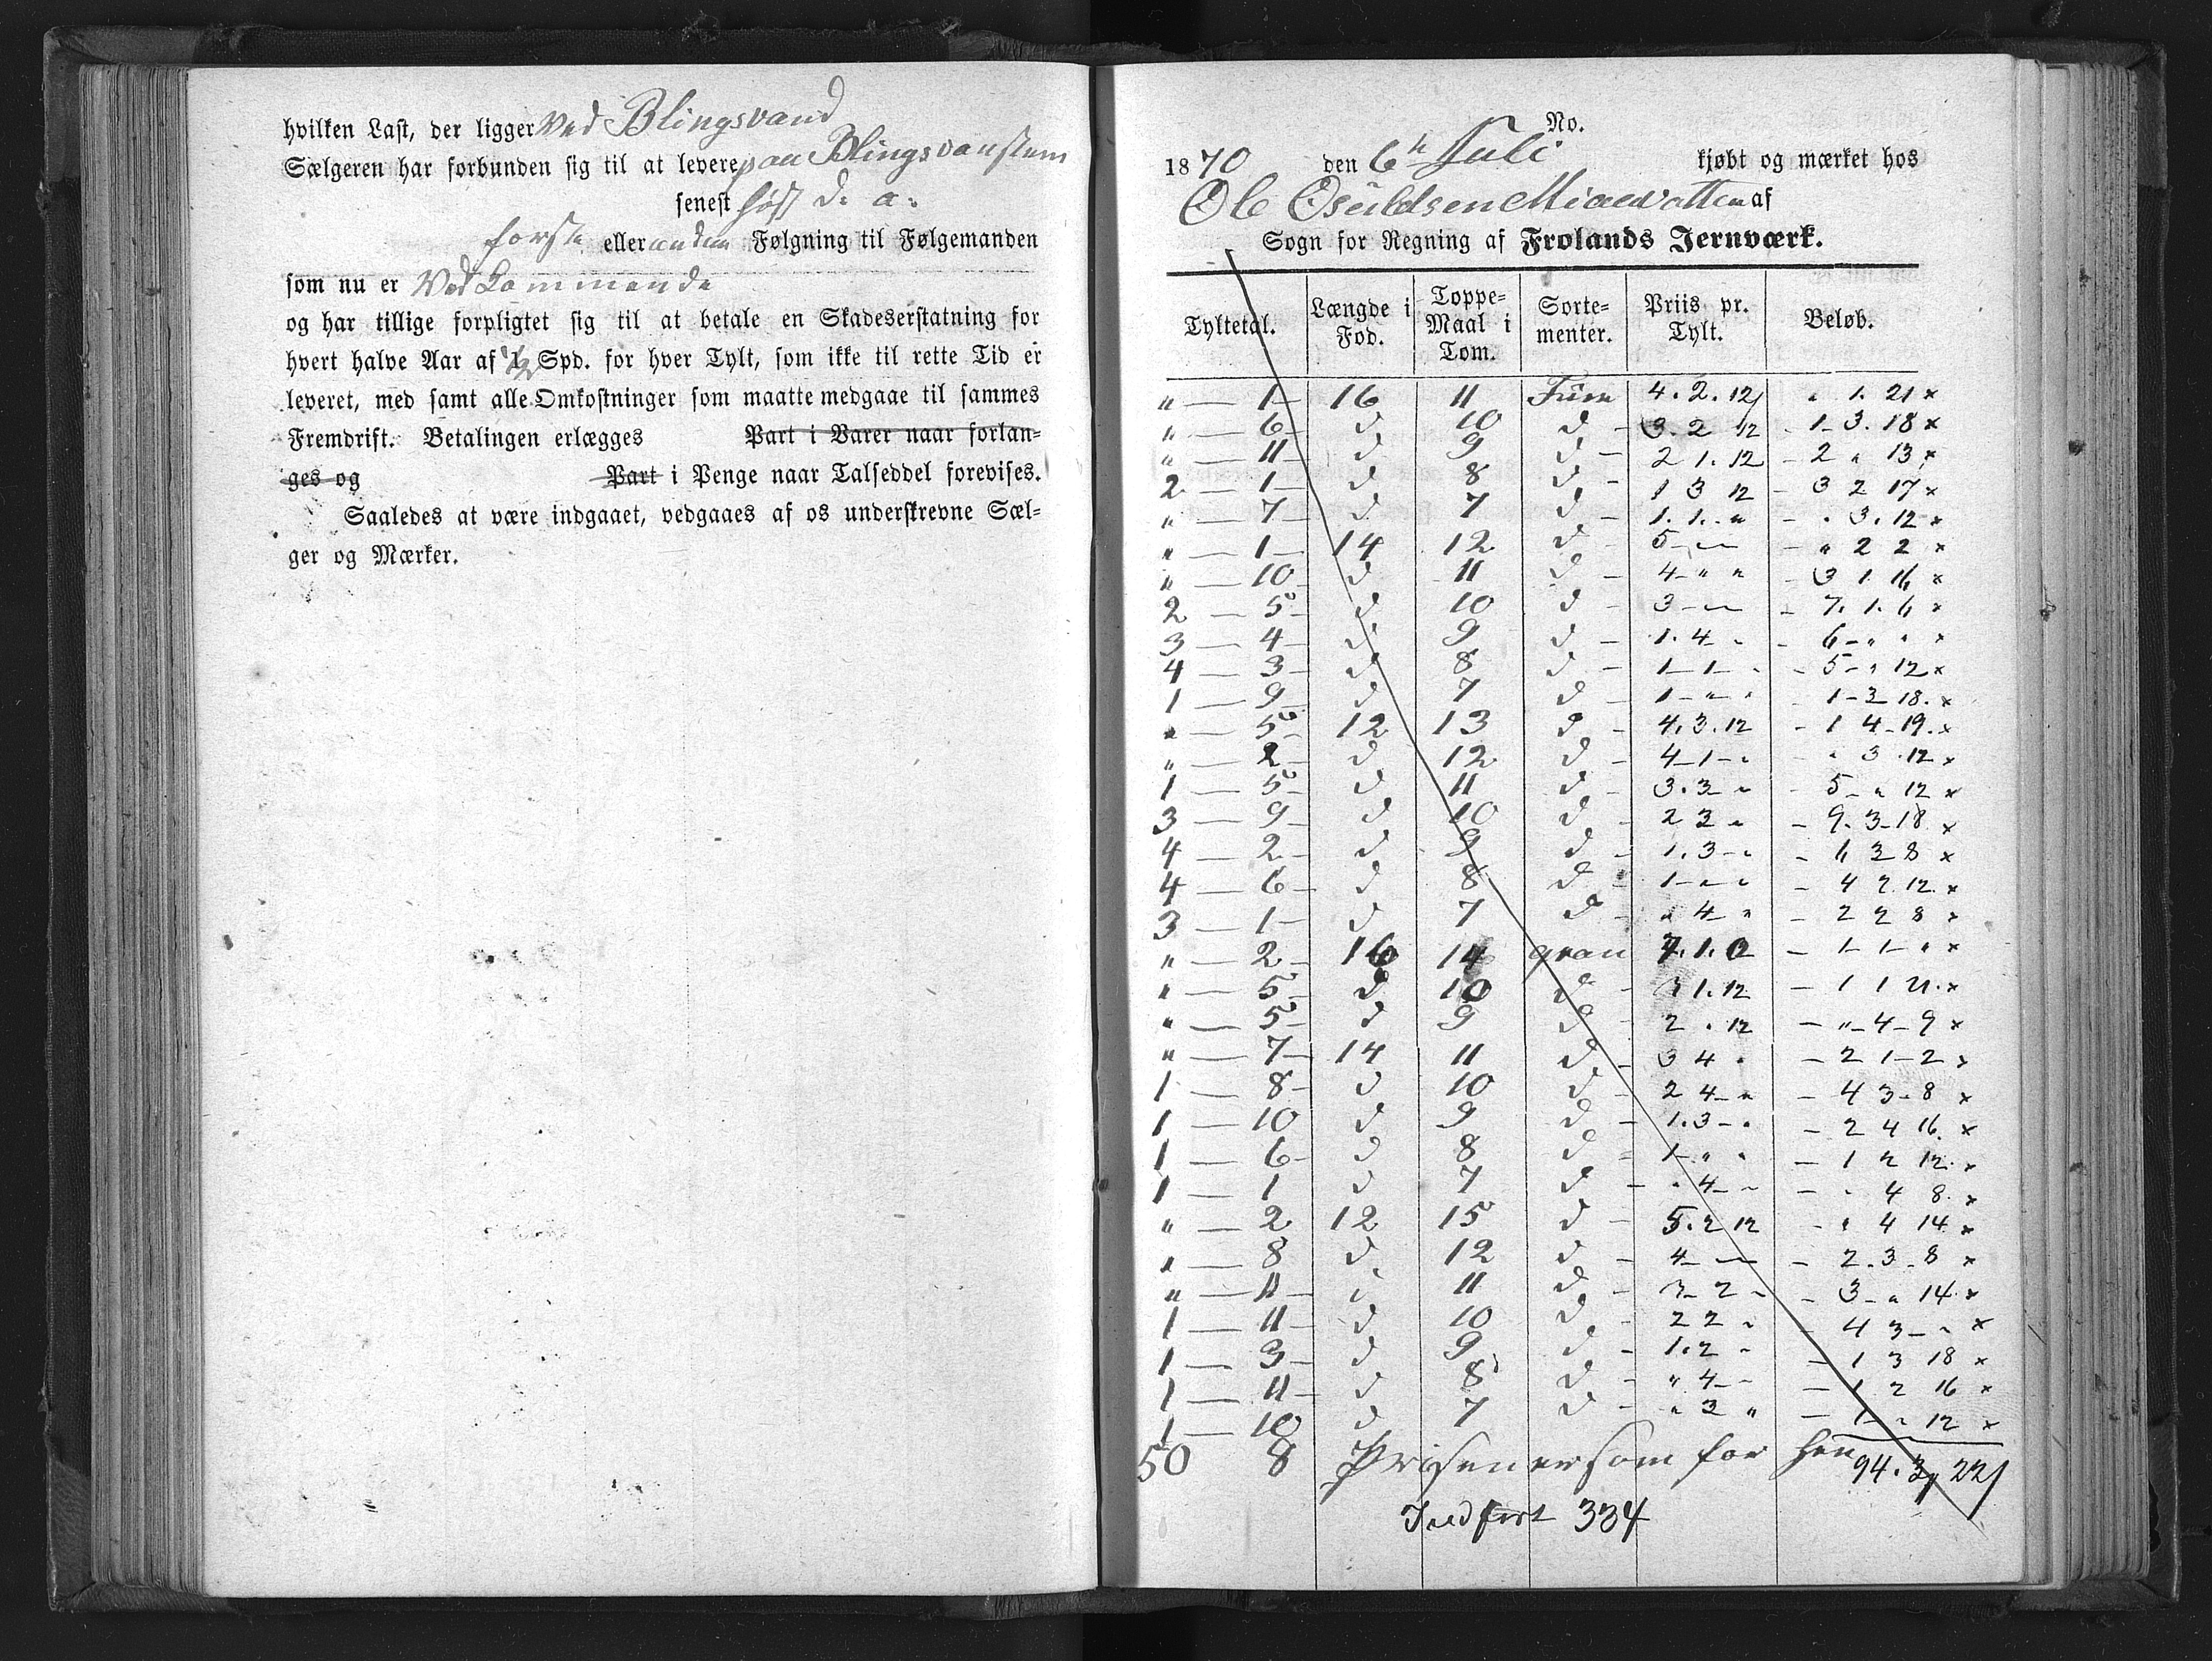 hvilken Last, der ligger Ved Blingsvand
Sælgeren har forbunden sig til at levere paa Blingsvanstem
senest høst d. a.
første eller anden Følgning til Følgemanden
som nu er Vedkommende
og har tillige forpligtet sig til at betale en Skadeserstatning for
hvert halve Aar af 1/2 Spd. for hver Tylt, som ikke til rette Tid er
leveret, med samt alle Omkostninger som maatte medgaae til sammes
Fremdrift. Betalingen erlægges Part i Varer naar forlan-
ges og Part i Penge naar Talseddel forevises.
Saaledes at være indgaaet, vedgaaes af os underskrevne Sæl-
ger og Mærker.
No.
1870 den 6te Juli kjøbt og mærket hos
Ole Osuldsen af
Sogn for Regning af Frolands Jernværk.
Tyltetal. Længde i Fod. Toppe-Maal i Tom. Sorte-menter. Priis pr. Tylt. Beløb.
" — 1 — 16 11 Furu 4. 2. 12 " 1. 21 x
" — 6 — d 10 d — 3. 2 12 — 1 3. 18 x
" — 11 — d 9 d — 2 1. 12 — 2 " 13 x
2 — 1 — d 8 d — 1 3 12 — 3 2 17 x
" — 7 — d 7 d — 1. 1. " — " 3. 12 x
" — 1 — 14 12 d — 5 — — " 2 2 x
" — 10 — d 11 d — 4 " " — 3 1 16 x
2 — 5 — d 10 d — 3 — — 7. 1. 6 x
3 — 4 — d 9 d — 1. 4 " — 6 " " x
4 — 3 — d 8 d — 1 1 " — 5 " 12 x
1 — 9 — d 7 d — 1 " " — 1 3 18. x
" — 5 — 12 13 d — 4. 3. 12 — 1 4 19. x
" — 2 — d 12 d — 4 1 " — " 3 12 x
1 — 5 — d 11 d — 3. 3 " — 5 " 12 x
3 — 9 — d 10 d — 2 3 " — 9. 3 18 x
4 — 2 — d 9 d — 1. 3 " — 6 3 8 x
4 — 6 — d 8 d — 1 " " — 4 2 12. x
3 — 1 — d 7 d — " 4 " — 2 2 8 x
" — 2 — 16 14 gran 7. 1. 0 — 1 1 " x
" — 5 — d 10 d — 3 1. 12 — 1 1 21. x
" — 5 — d 9 d — 2 " 12 — " 4 9 x
" — 7 — 14 11 d — 3 4 " — 2 1 2 x
1 — 8 — d 10 d — 2 4 " — 4 3 8 x
1 — 10 d 9 d — 1. 3 " — 2 4 16. x
1 — 6 — d 8 d — 1 " " — 1 2 12. x
1 — 1 d 7 d — " 4 " — " 4 8. x
" — 2 12 15 d — 5. 2 12 — " 4 14 x
" — 8 d 12 d — 4 — — 2. 3. 8 x
" — 11 — d 11 d — 3 2 " — 3 " 14 x
1 — 11 — d 10 d — 2 2 " — 4 3 " x
1 — 3 — d 9 d — 1. 2 " — 1 3 18 x
1 — 11 — d 8 d — " 4 " — 1 2 16 x
1 — 10 d 7 d — " 3 " — 1 " 12 x
50 8 Prisen er som for hen 94. 3, 22
Indført 334